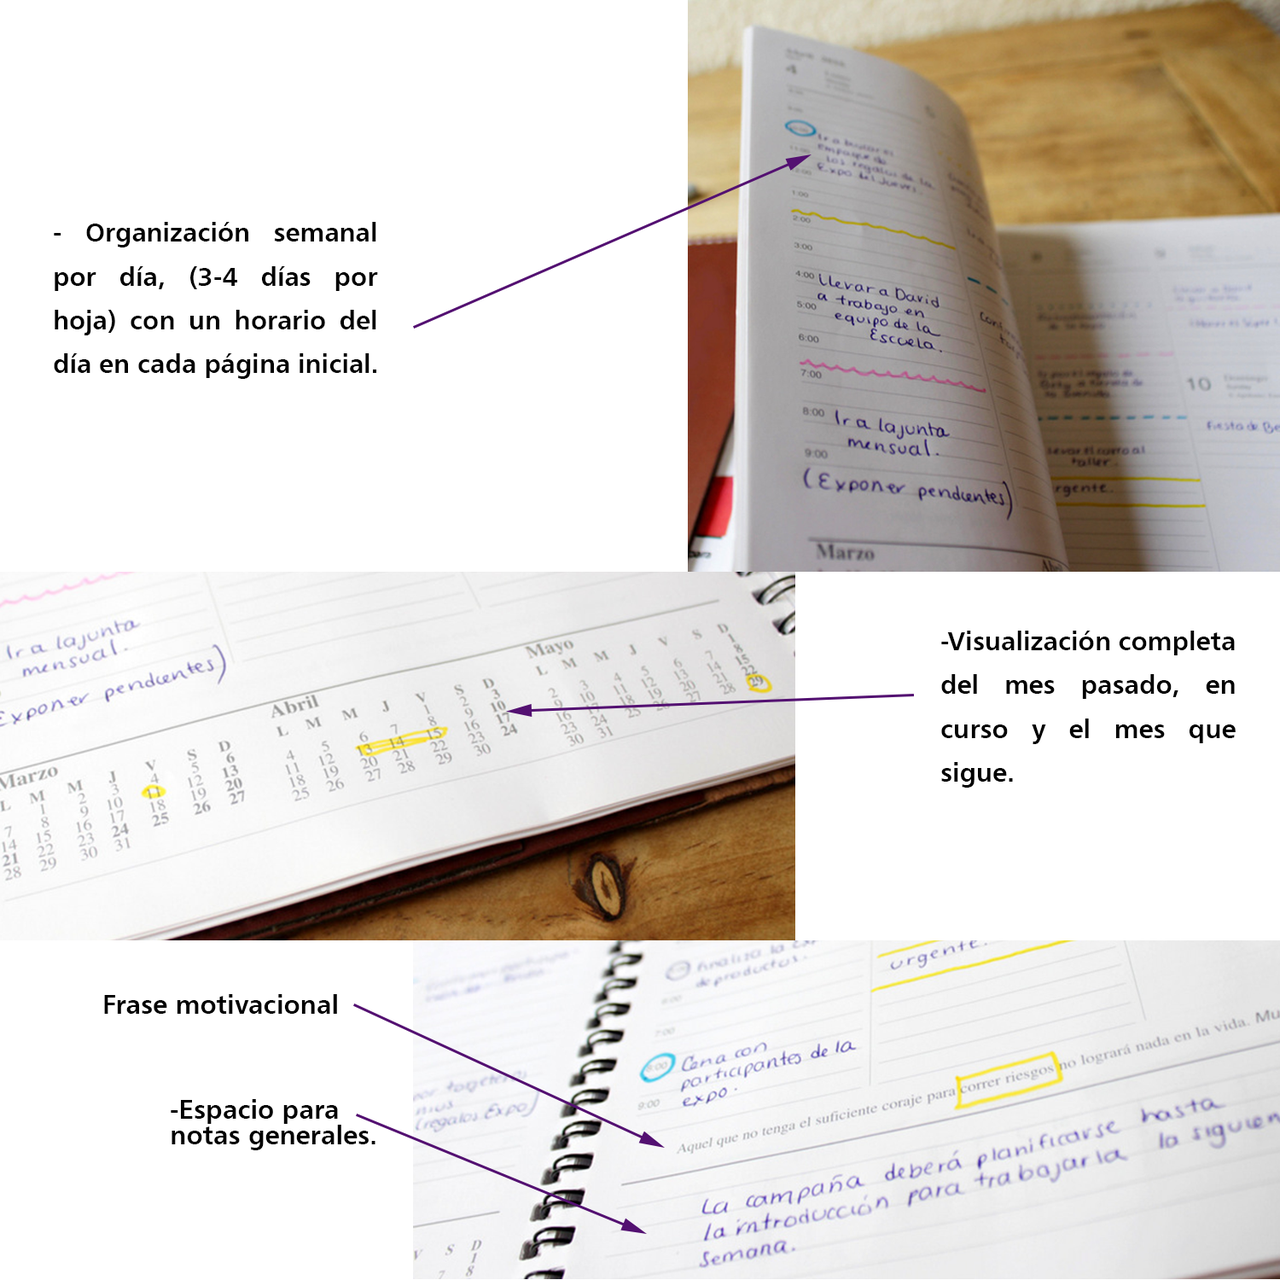 - Organización semanal
por día, (3-4 días por
hoja) con un horario del
día en cada página inicial.
4
los regalos de la
Expo del Jueves.
1:00
2:00
3:00
4:00
llevar a David
a trabajo en
5:00
equipo de la
Escuela.
6:00
7:00
8:00
Ir a la junta
mensual.
9:00
(Exponer pendientes)
Marzo
8
9
10 Domingo
Fiesta de Be
llevar el carro al
taller.
rgente.
Ir a la junta
mensual.
Exponer pendientes)
Marzo
L M M J V S D
1 2 3 4 5 6
7 8 9 10 11 12 13
14 15 16 17 18 19 20
21 22 23 24 25 26 27
28 29 30 31
Abril
L M M J V S D
1 2 3
4 5 6 7 8 9 10
11 12 13 14 15 16 17
18 19 20 21 22 23 24
25 26 27 28 29 30
Mayo
L M M J V S D
1
2 3 4 5 6 7 8
9 10 11 12 13 14 15
16 17 18 19 20 21 22
23 24 25 26 27 28 29
30 31
-Visualización completa
del mes pasado, en
curso y el mes que
sigue.
Frase motivacional
-Espacio para
notas generales.
finaliza la
de productos.
urgente.
7:00
8:00
Cena con
participantes de la
9:00
expo.
(regalos Expo)
Aquel que no tenga el suficiente coraje para correr riesgos no logrará nada en la vida. Mu
La campaña deberá planificarse hasta
la introducción para trabajarla la siguien
semana.
V S D
1
7 8